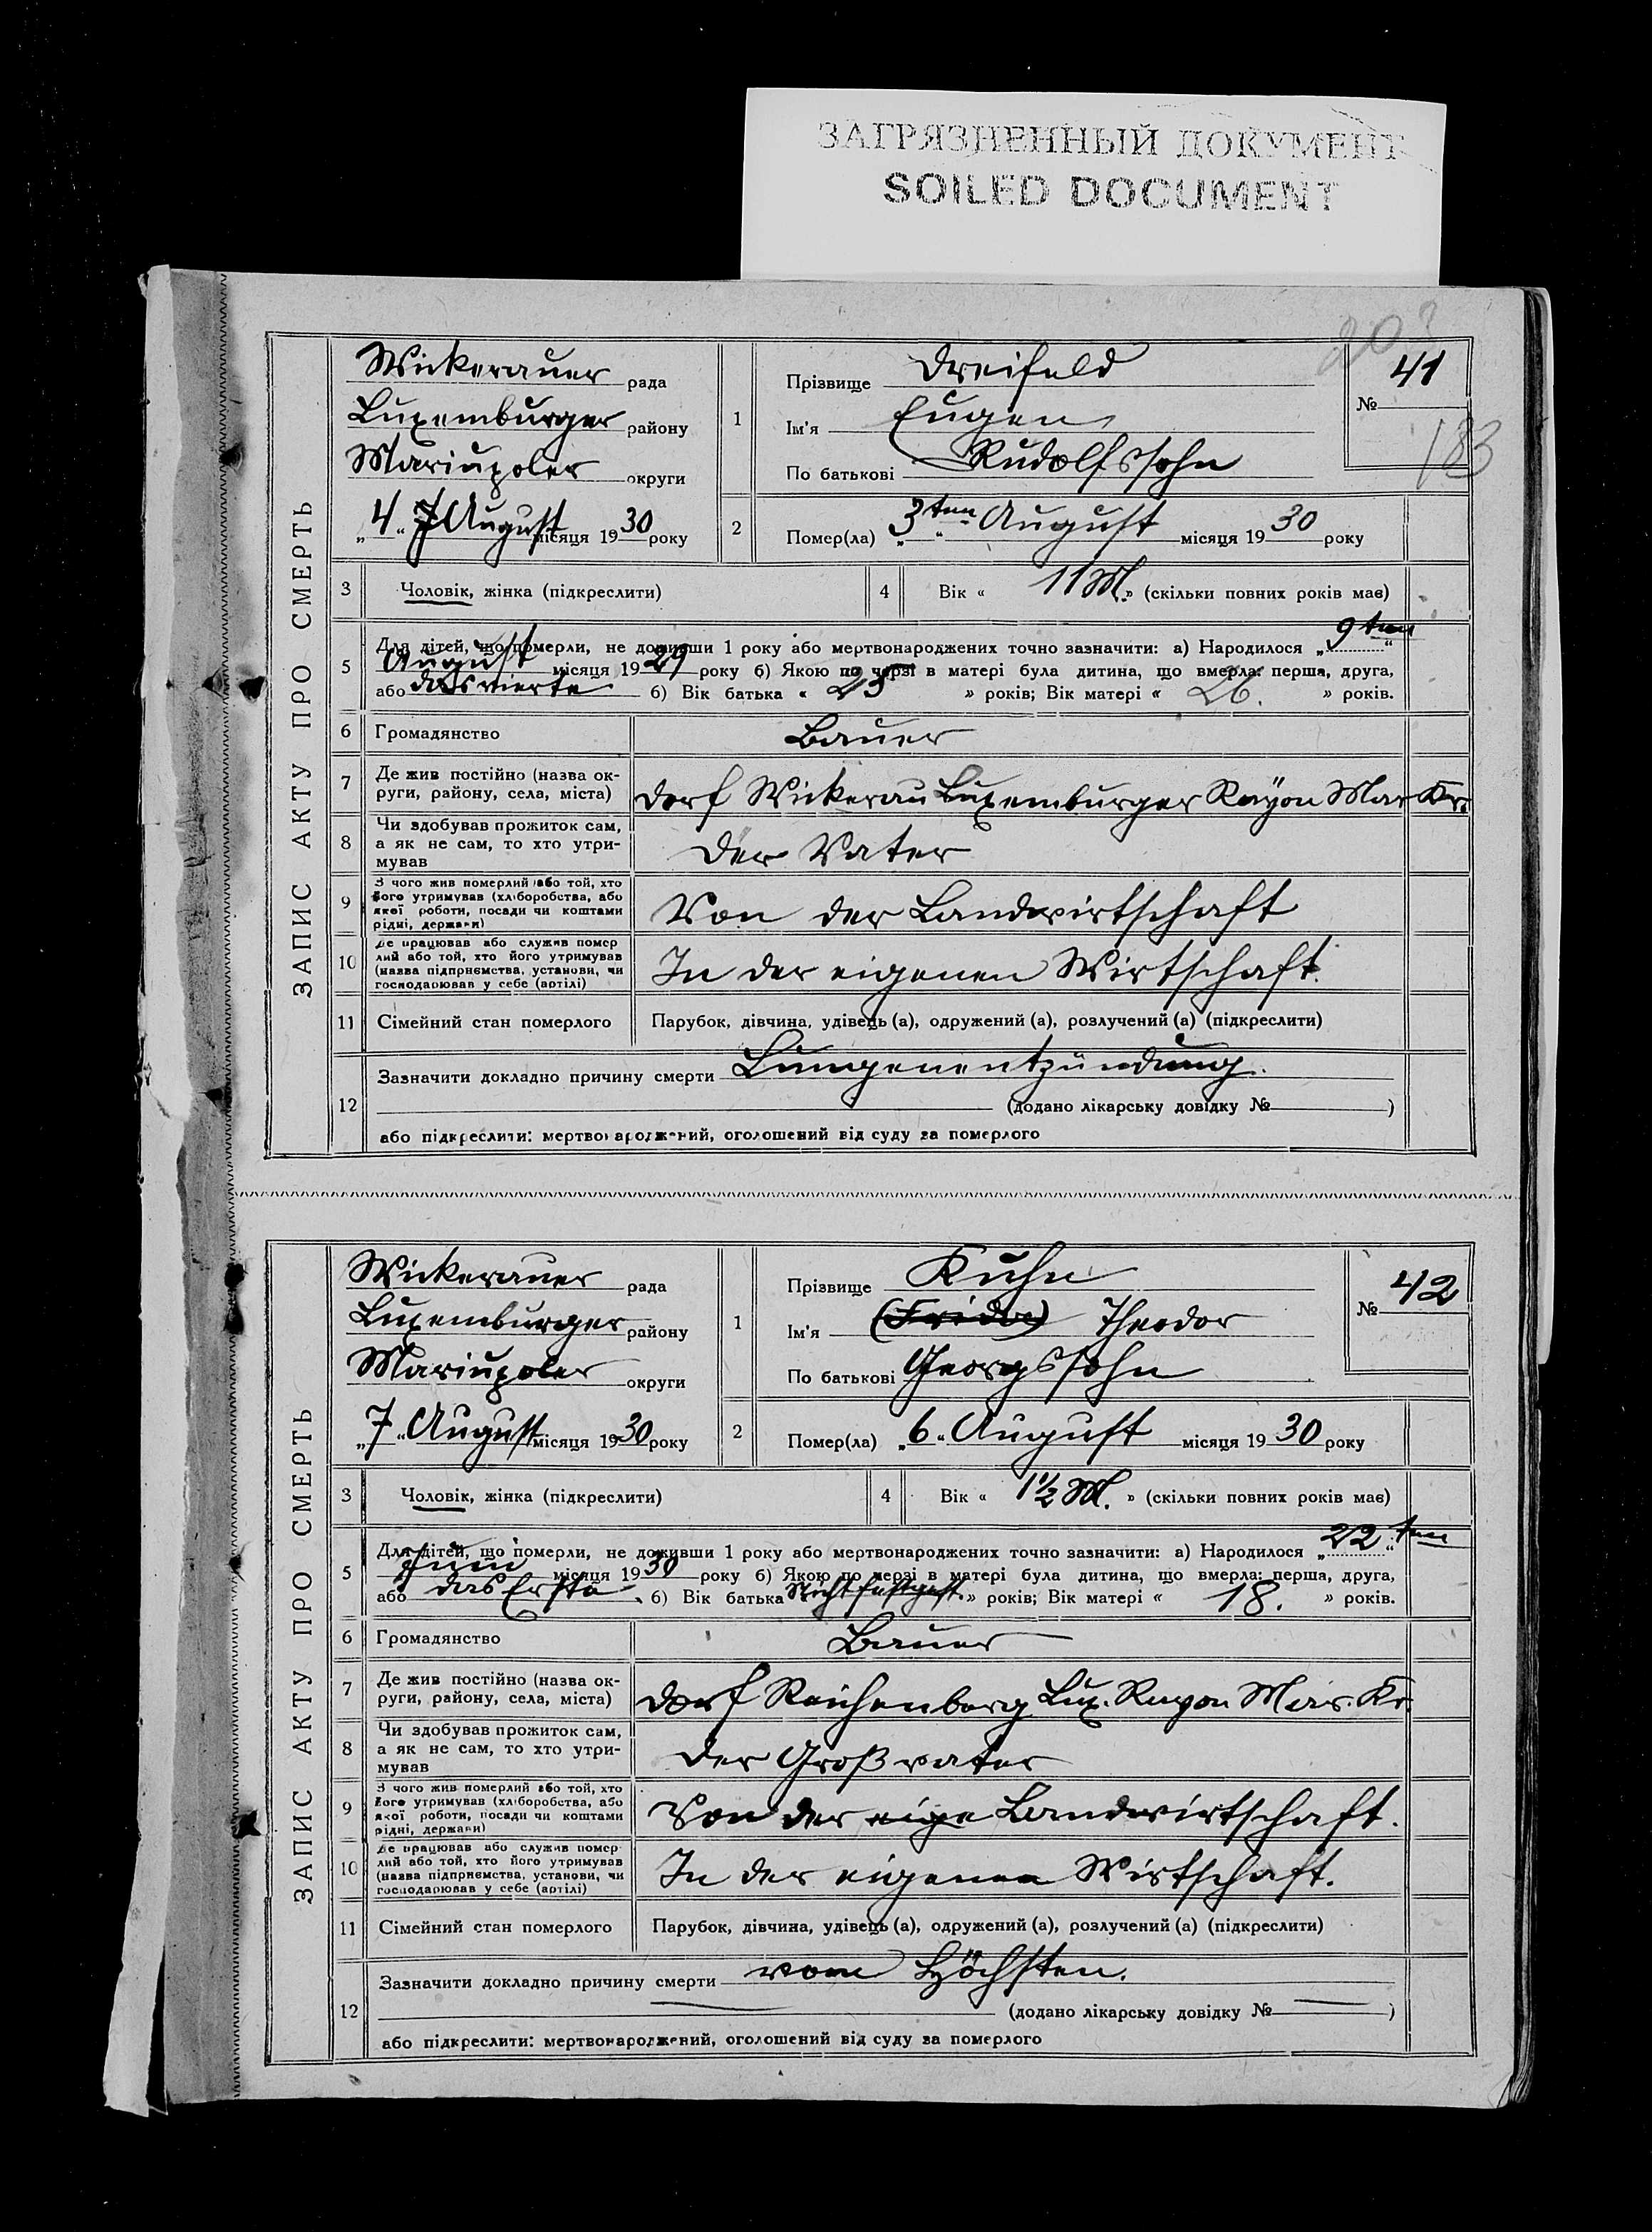 ЗАГРЯЗНЕННЫЙ ДОКУМЕНТ
SOILED DOCUMENT
203
183
ЗАПИС АКТУ ПРО СМЕРТЬ
Wickerauer рада
Luxemburger району
Mariupoler округи
„4“ 7 August місяця 1930 року
1
Прізвище Dreifeld
Ім'я Eugen
По батькові Rudolfssohn
№ 41
2 Помер(ла) „3ten“ August місяця 1930 року
3 Чоловік, жінка (підкреслити)
4 Вік « 11 M. » (скільки повних років має)
5 Для дітей, що померли, не доживши 1 року або мертвонароджених точно зазначити: а) Народилося „9ten“
August місяця 1929 року б) Якою по черзі в матері була дитина, що вмерла: перша, друга,
або das vierte б) Вік батька « 25 » років; Вік матері « 26. » років.
6 Громадянство Bauer
7 Де жив постійно (назва округи, району, села, міста) Dorf Wickerau Luxemburger Rayon Mar Kr.
8 Чи здобував прожиток сам,
а як не сам, то хто утри-
мував Der Vater
9 З чого жив померлий або той, хто
його утримував (хліборобства, або
якої роботи, посади чи коштами
рідні, держави) Von der Landwirtschaft
10 Де працював або служив помер
лий або той, хто його утримував
(назва підприємства, установи, чи
господарював у себе (артілі) In der eigenen Wirtschaft.
11 Сімейний стан померлого Парубок, дівчина, удівець (а), одружений (а), розлучений (а) (підкреслити)
12 Зазначити докладно причину смерти Lungenentzündung.
(додано лікарську довідку № )
або підкреслити: мертвонароджений, оголошений від суду за померлого
ЗАПИС АКТУ ПРО СМЕРТЬ
Wickerauer рада
Luxemburger району
Mariupoler округи
„7“ August місяця 1930 року
1
Прізвище Kuhn
Ім'я (Frida) Theodor
По батькові Georgssohn
№ 42
2 Помер(ла) „6“ August місяця 1930 року
3 Чоловік, жінка (підкреслити)
4 Вік « 1½ M. » (скільки повних років має)
5 Для дітей, що померли, не доживши 1 року або мертвонароджених точно зазначити: а) Народилося „22ten“
Juni місяця 1930 року б) Якою по черзі в матері була дитина, що вмерла: перша, друга,
або das Erste б) Вік батька Nicht festgest. » років; Вік матері « 18. » років.
6 Громадянство Bauer
7 Де жив постійно (назва ок-
руги, району, села, міста) Dorf Reichenberg Lux. Rayon Mar. Kr.
8 Чи здобував прожиток сам,
а як не сам, то хто утри-
мував Der Großvater
9 З чого жив померлий або той, хто
його утримував (хліборобства, або
якої роботи, посади чи коштами
рідні, держави) Von der eige Landwirtschaft.
10 Де працював або служив помер
лий або той, хто його утримував
(назва підприємства, установи, чи
господарював у себе (артілі) In der eigenen Wirtschaft.
11 Сімейний стан померлого Парубок, дівчина, удівець (а), одружений (а), розлучений (а) (підкреслити)
12 Зазначити докладно причину смерти vom Höchsten.
(додано лікарську довідку № — )
або підкреслити: мертвонароджений, оголошений від суду за померлого